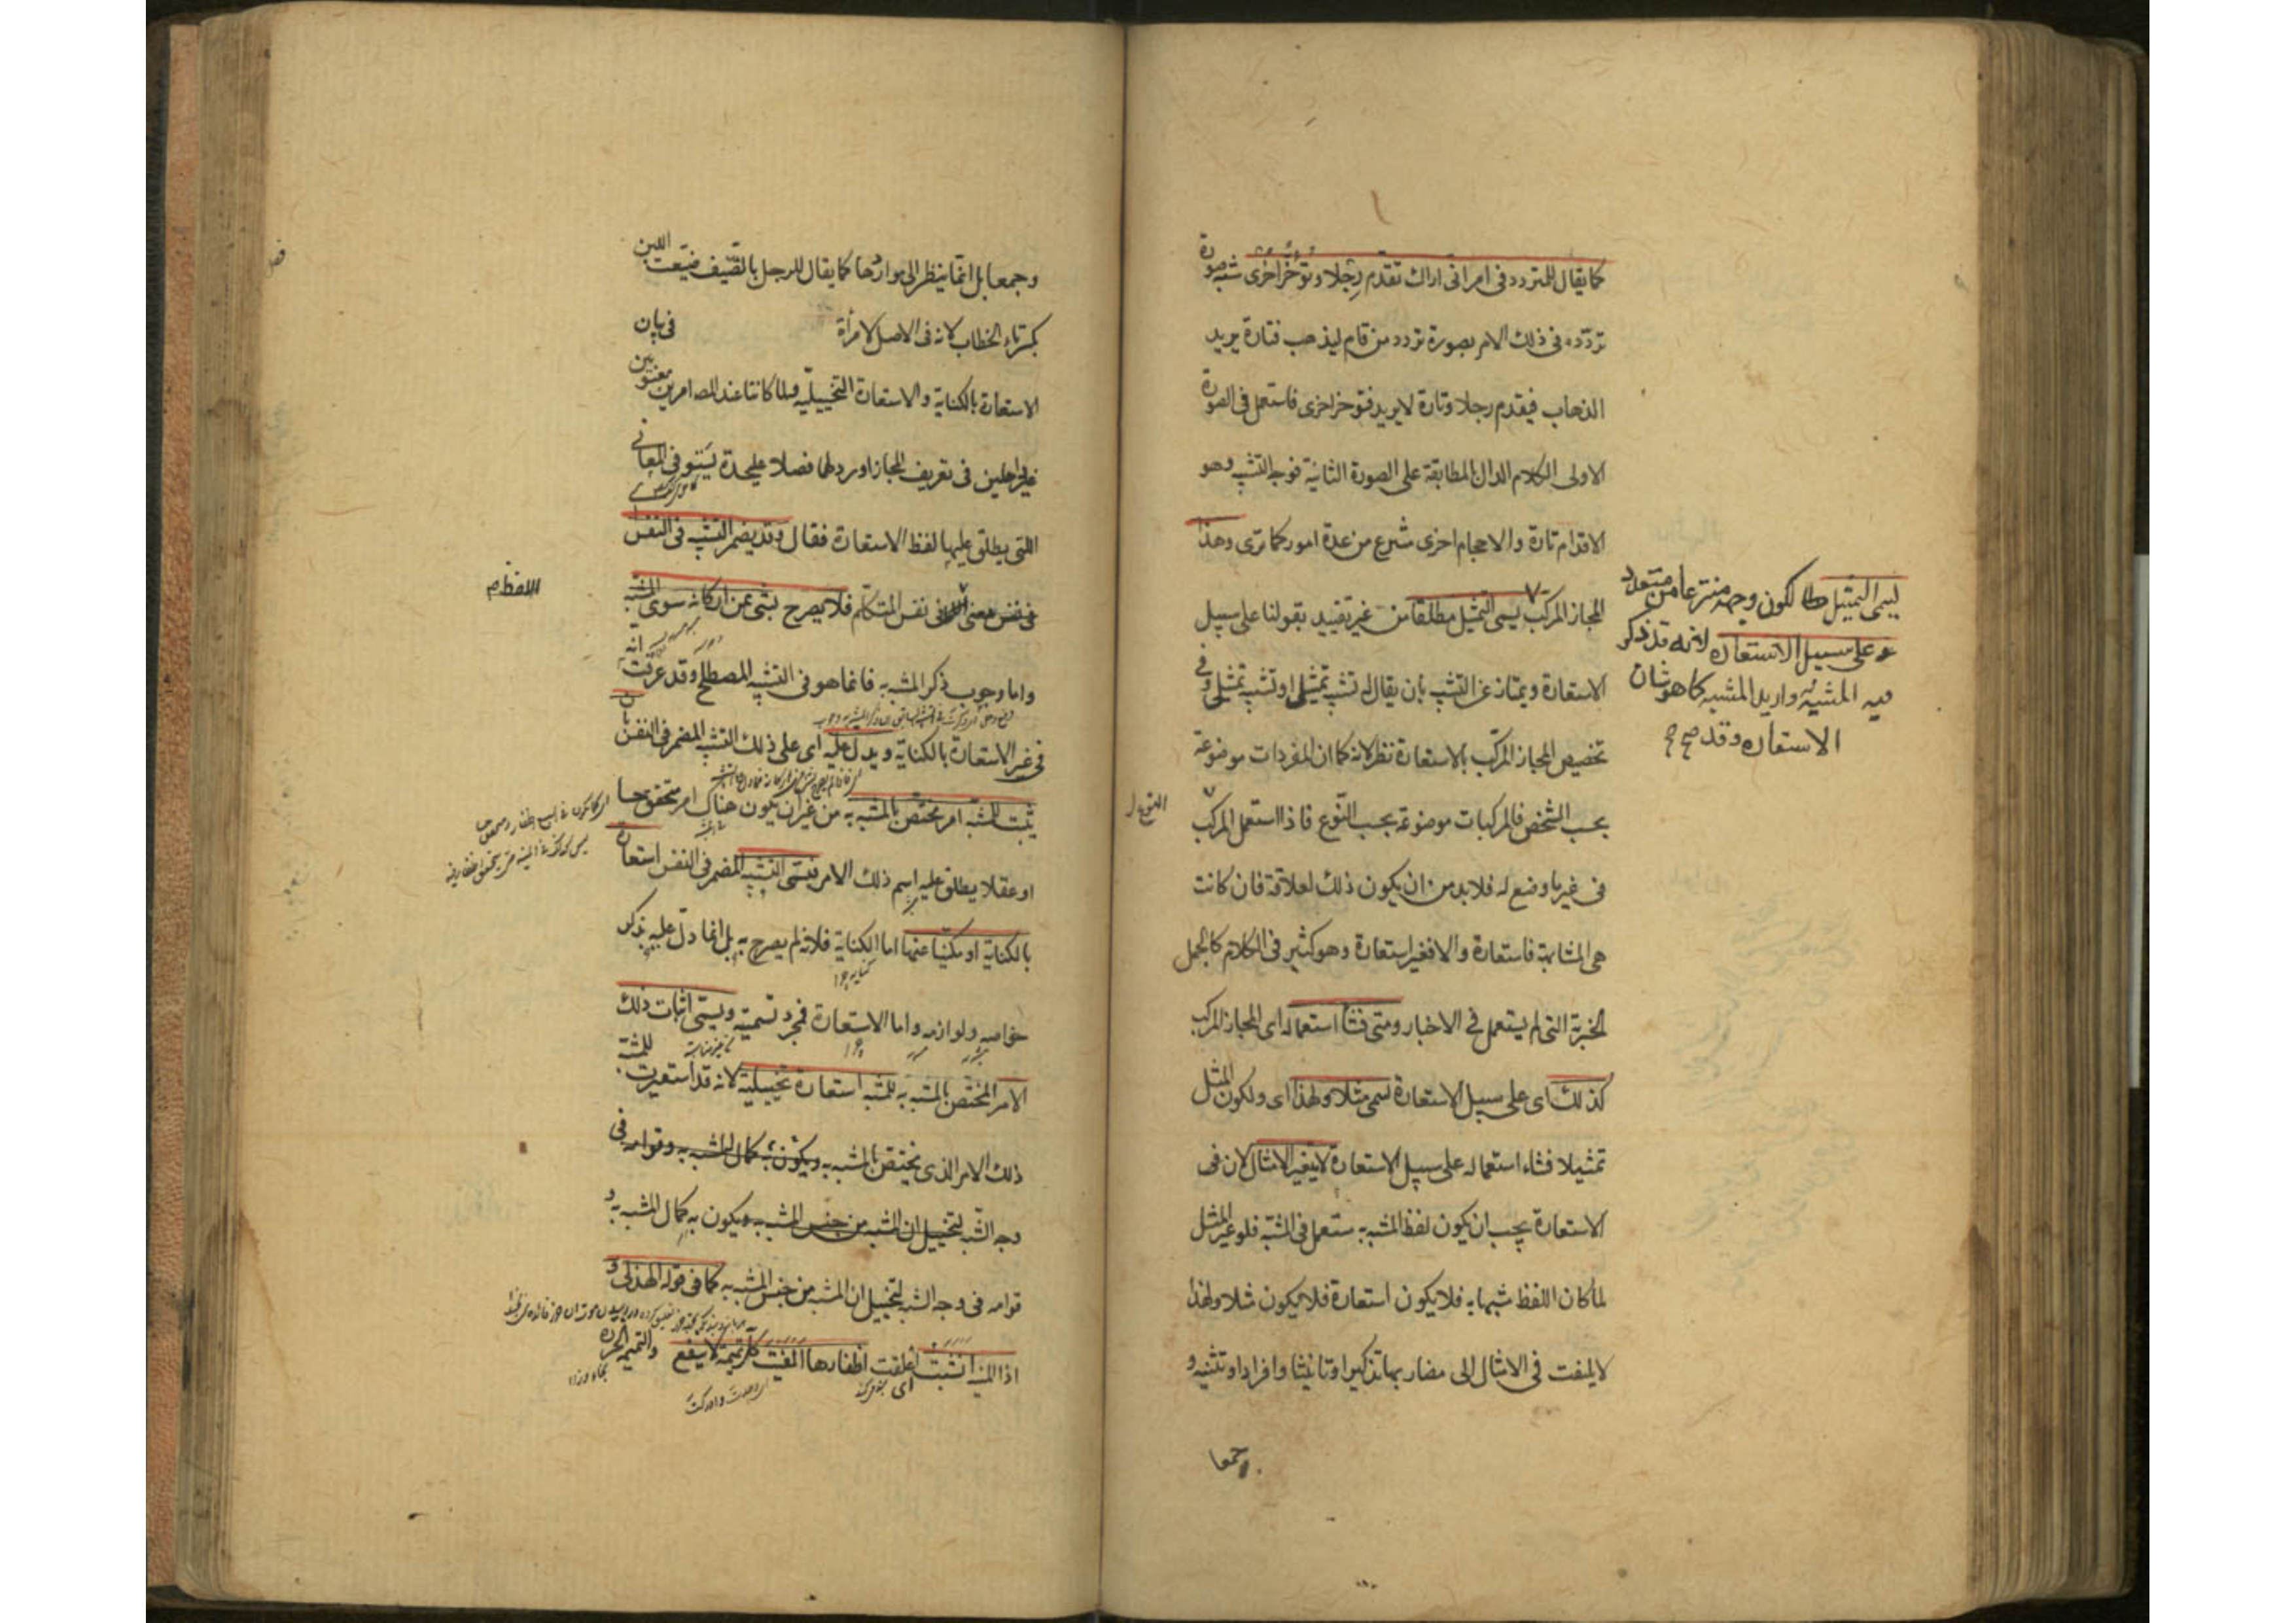 كما يقال للمتردد فى امر انى اراك تقدم رجلا وتؤخر اخرى شبه صورة
تردده فى ذلك الامر بصورة تردد من قام ليذهب فتارة يريد
الذهاب فيقدم رجلا وتارة لا يريد فتوخر اخرى فاستعمل فى الصورة
الاولى الكلام الدال بالمطابقة على الصورة الثانية فوجه التشبه وهو
الاقدام تارة والاحجام اخرى منتزع من عدة امور كما ترى وهذا
المجاز المركب يسمى التمثيل مطلقا من غير تقييد بقولنا على سبيل
الاستعارة ويمتاز عن التشبه بان يقال له تشبه تمثيل او تشبه تمثيلى وفى
تخصيص المجاز المركب بالاستعارة نظر لانه كما ان المفردات موضوعة
بحسب الشخص فالمركبات موضوعة بحسب النوع فاذا استعمل المركب
فى غير ما وضع له فلا بد من ان يكون ذلك لعلاقة فان كانت
هى المشابهة فاستعارة والا فغير استعارة وهو كثير فى الكلام كالجمل
الخبرية التى لم يستعمل فى الاخبار ومتى فشا استعماله اى المجاز المركب
كذلك اى على سبيل الاستعارة سمى مثلا ولهذا اى ولكون المثل
تمثيلا فشاء استعماله على سبيل الاستعارة لا يتغير الامثال لان فى
الاستعارة يجب ان يكون لفظ المشبه به ستعمل فى المشبه فلو غير المثل
لما كان اللفظ شبها به فلا يكون استعارة فلا يكون مثلا ولهذا
لا يلتفت فى الامثال الى مضاربها تذكيرا وتانيثا وافرادا وتثنيه و
وجمعا
ليسمى التمثيل لكون وجهه منتزعا من متعدد
وعلى سبيل الاستعاره لانه قد ذكر
فيه المشبه به واريد المشبه كما هو شان
الاستعاره وقد صح
وجمعا بل انما ينظر الى مواردها كما يقال للرجل بالضيف ضيعت اللبن
بكسر تاء الخطاب لانه فى الاصل لامرأة فى بيان
الاستعارة بالكناية والاستعارة التخييلية ولما كانتا عند المصـ امرين معنويين
غير داخلين فى تعريف المجاز اورد لهما فصلا عليحدة ليستوفى المعانى
اللتى يطلق عليها لفظ الاستعارة فقال وقد يضمر التشبه فى النفس
فى نفس معنى اللفظ فى نفس المتكلم فلا يصرح بشى من اركانه سوى المشبه
واما وجوب ذكر المشبه به فانما هو فى التشبه المصطلح وقد عرفت انه
فى غير الاستعارة بالكناية ويدل عليه اى على ذلك التشبه المضمر فى النفس بان
يثبت للمشبه امر مختص بالمشبه به من غير ان يكون هناك امر متحقق حسا
او عقلا يطلق عليه اسم ذلك الامر فيسمى التشبه المضمر فى النفس استعارة
بالكناية او مكنيا عنها اما الكناية فلانه لم يصرح به بل انما دل عليه بذكر
خواصه ولوازمه واما الاستعارة فمجرد تسمية ويسمى اثبات ذلك
الامر المختص بالمشبه به للمشبه استعارة تخييلية لانه قد استعيرت للمشبه
ذلك الامر الذى يختص بالمشبه به ويكون به كمال المشبه به وقوامه فى
وجه الشبه لتخييل ان المشبه من جنس المشبه به ويكون به كمال المشبه به و
قوامه فى وجه الشبه لتخييل ان المشبه من جنس المشبه به كما فى قوله الهذلى و
اذا المنية انشبت اعلقت اظفارها الفيت كل تميمة لا ينفع والتميمه الخرزه